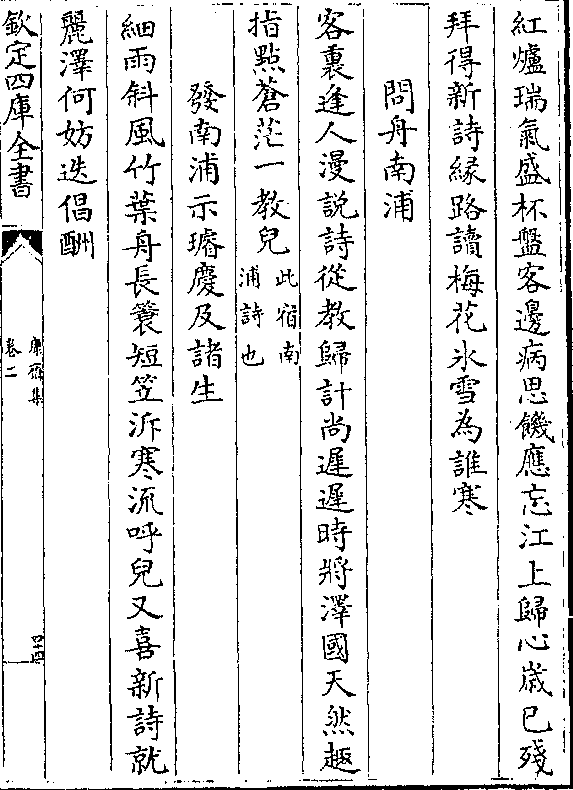 紅爐瑞氣盛杯盤客邊病思饑應忘江上歸心歲已殘
拜得新詩緣路讀梅花氷雪為誰寒
問舟南浦
客裏逢人漫說詩從教歸計尚遲遲時將澤國天然趣
指點蒼茫一教兒此宿南浦詩也
發南浦示璿慶及諸生
細雨斜風竹葉舟長簑短笠泝寒流呼兒又喜新詩就
麗澤何妨迭倡酬
欽定四庫全書
康齋集
卷二
四十四